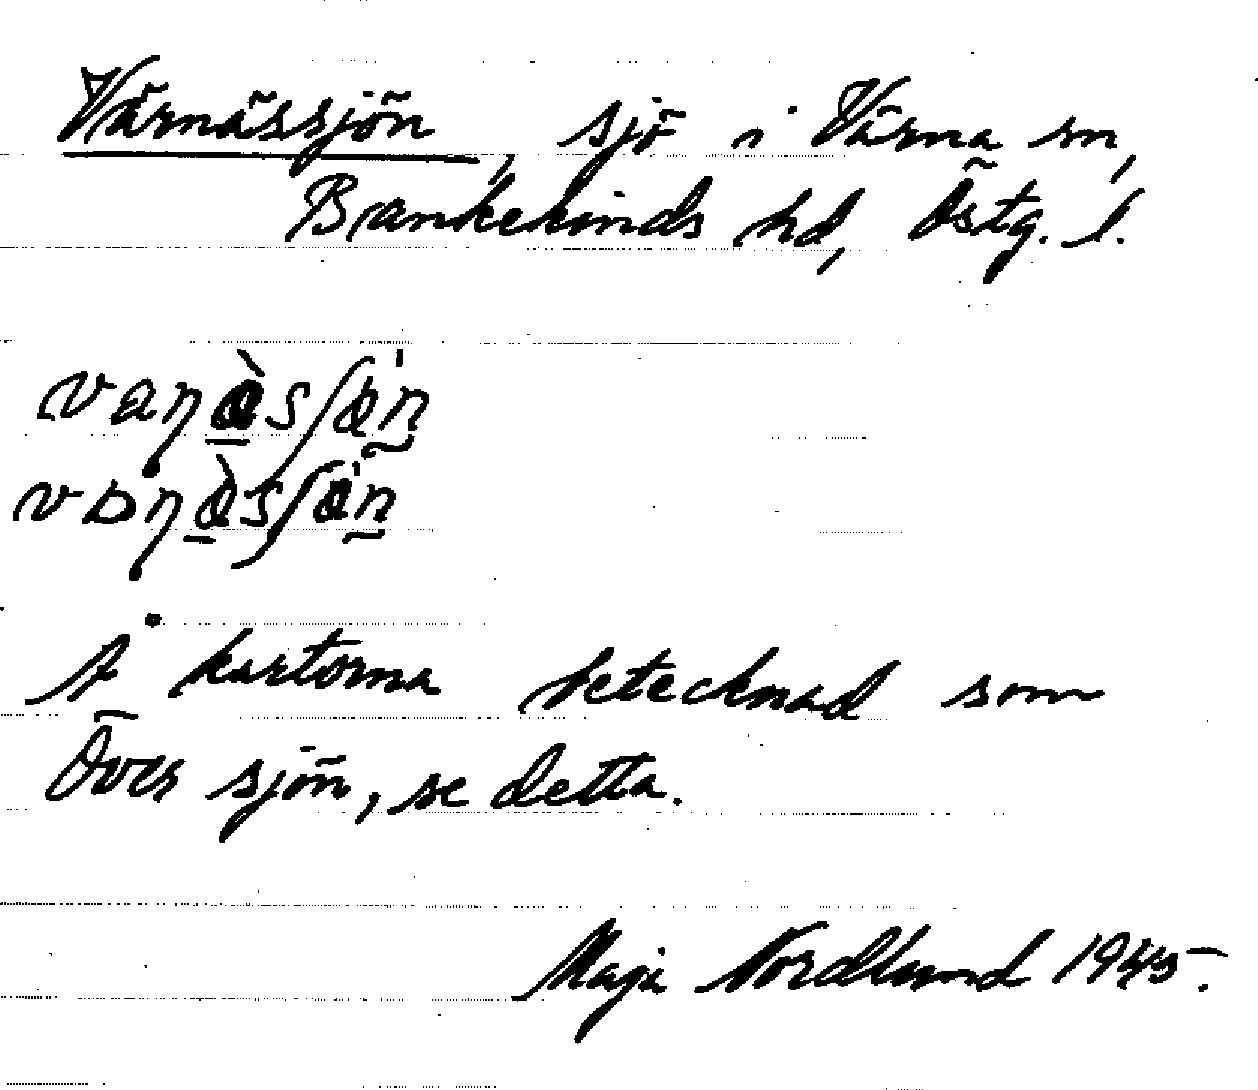 Värnässjön, sjö i Värna sn,
Bankekinds hd, Östg. l.
Å kartorna betecknad som
Över sjön, se detta.
Maja Nordlund 1945.